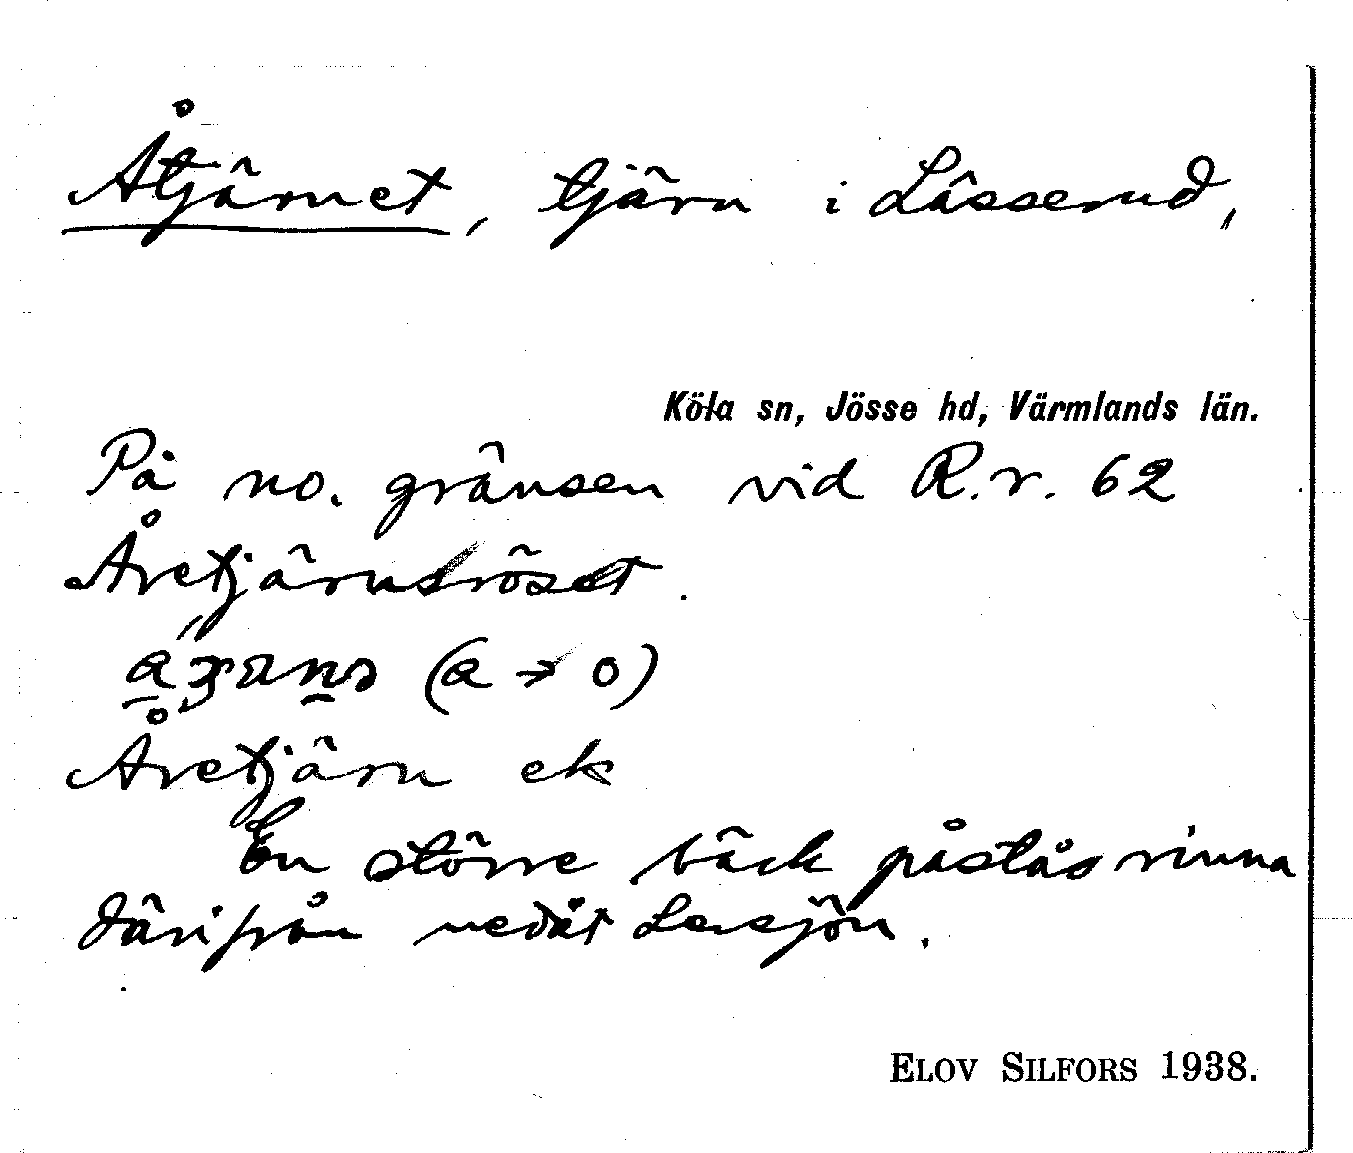 Åtjärnet, tjärn i Lässerud,
Köla sn, Jösse hd, Värmlands län.
På no. gränsen vid R.r. 62
Åretjärnsröset.
(a → o)
Åretjärn ek
En större bäck påstås rinna
därifrån nedåt Lersjön.
ELOV SILFORS 1938.